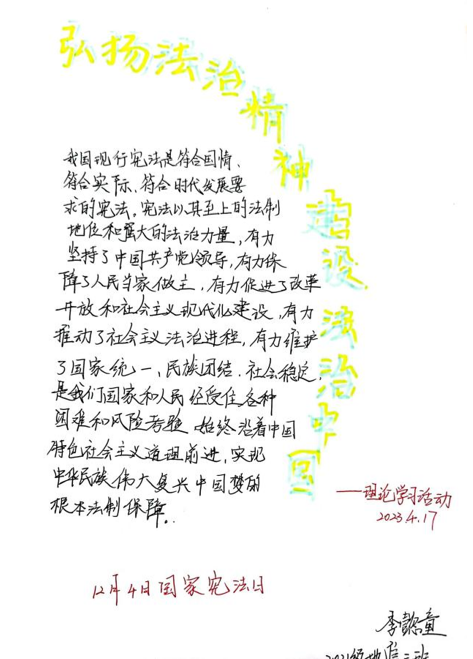 弘扬法治精神 建设法治中国
我国现行宪法是符合国情、
符合实际、符合时代发展要
求的宪法。宪法以其至上的法制
地位和强大的法治力量，有力
坚持了中国共产党领导，有力保
障了人民当家做主，有力促进了改革
开放和社会主义现代化建设，有力
推动了社会主义法治进程，有力维护
了国家统一、民族团结、社会稳定，
是我们国家和人民经受住各种
困难和风险考验 始终沿着中国
特色社会主义道理前进，实现
中华民族伟大复兴中国梦的
根本法制保障。
——理论学习活动
2023.4.17
12月4日国家宪法日
李懿童